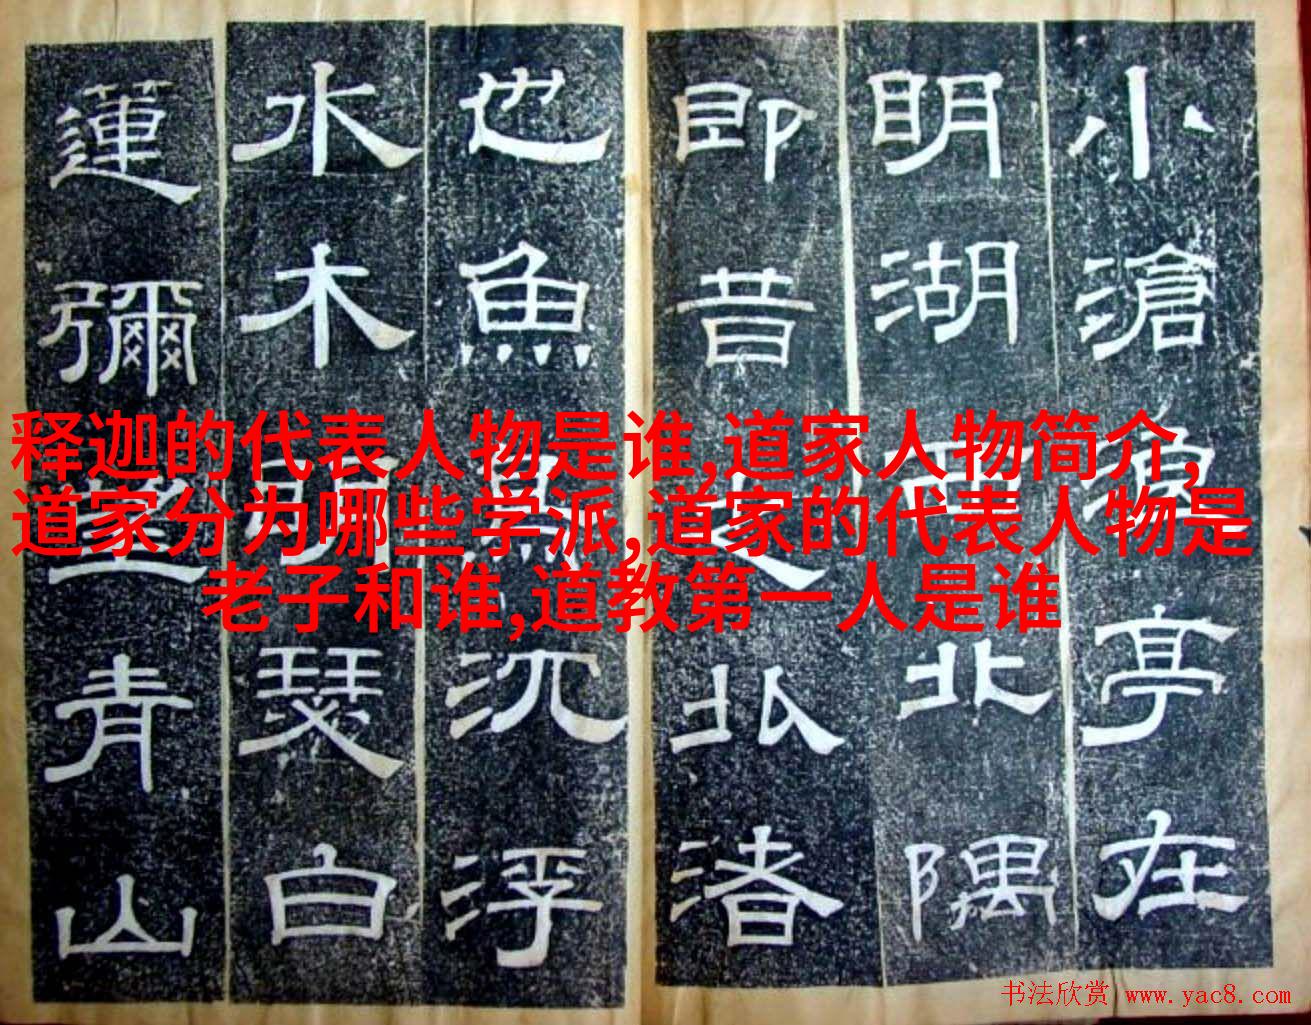 小滄浪亭在
明湖西北隅
即昔之北渚
也魚鳥沉浮
水木明瑟白
蓮彌望青山
释迦的代表人物是谁,道家人物简介,
道家分为哪些学派,道家的代表人物是
老子和谁,道教第一人是谁
书法欣赏 www.yac8.com